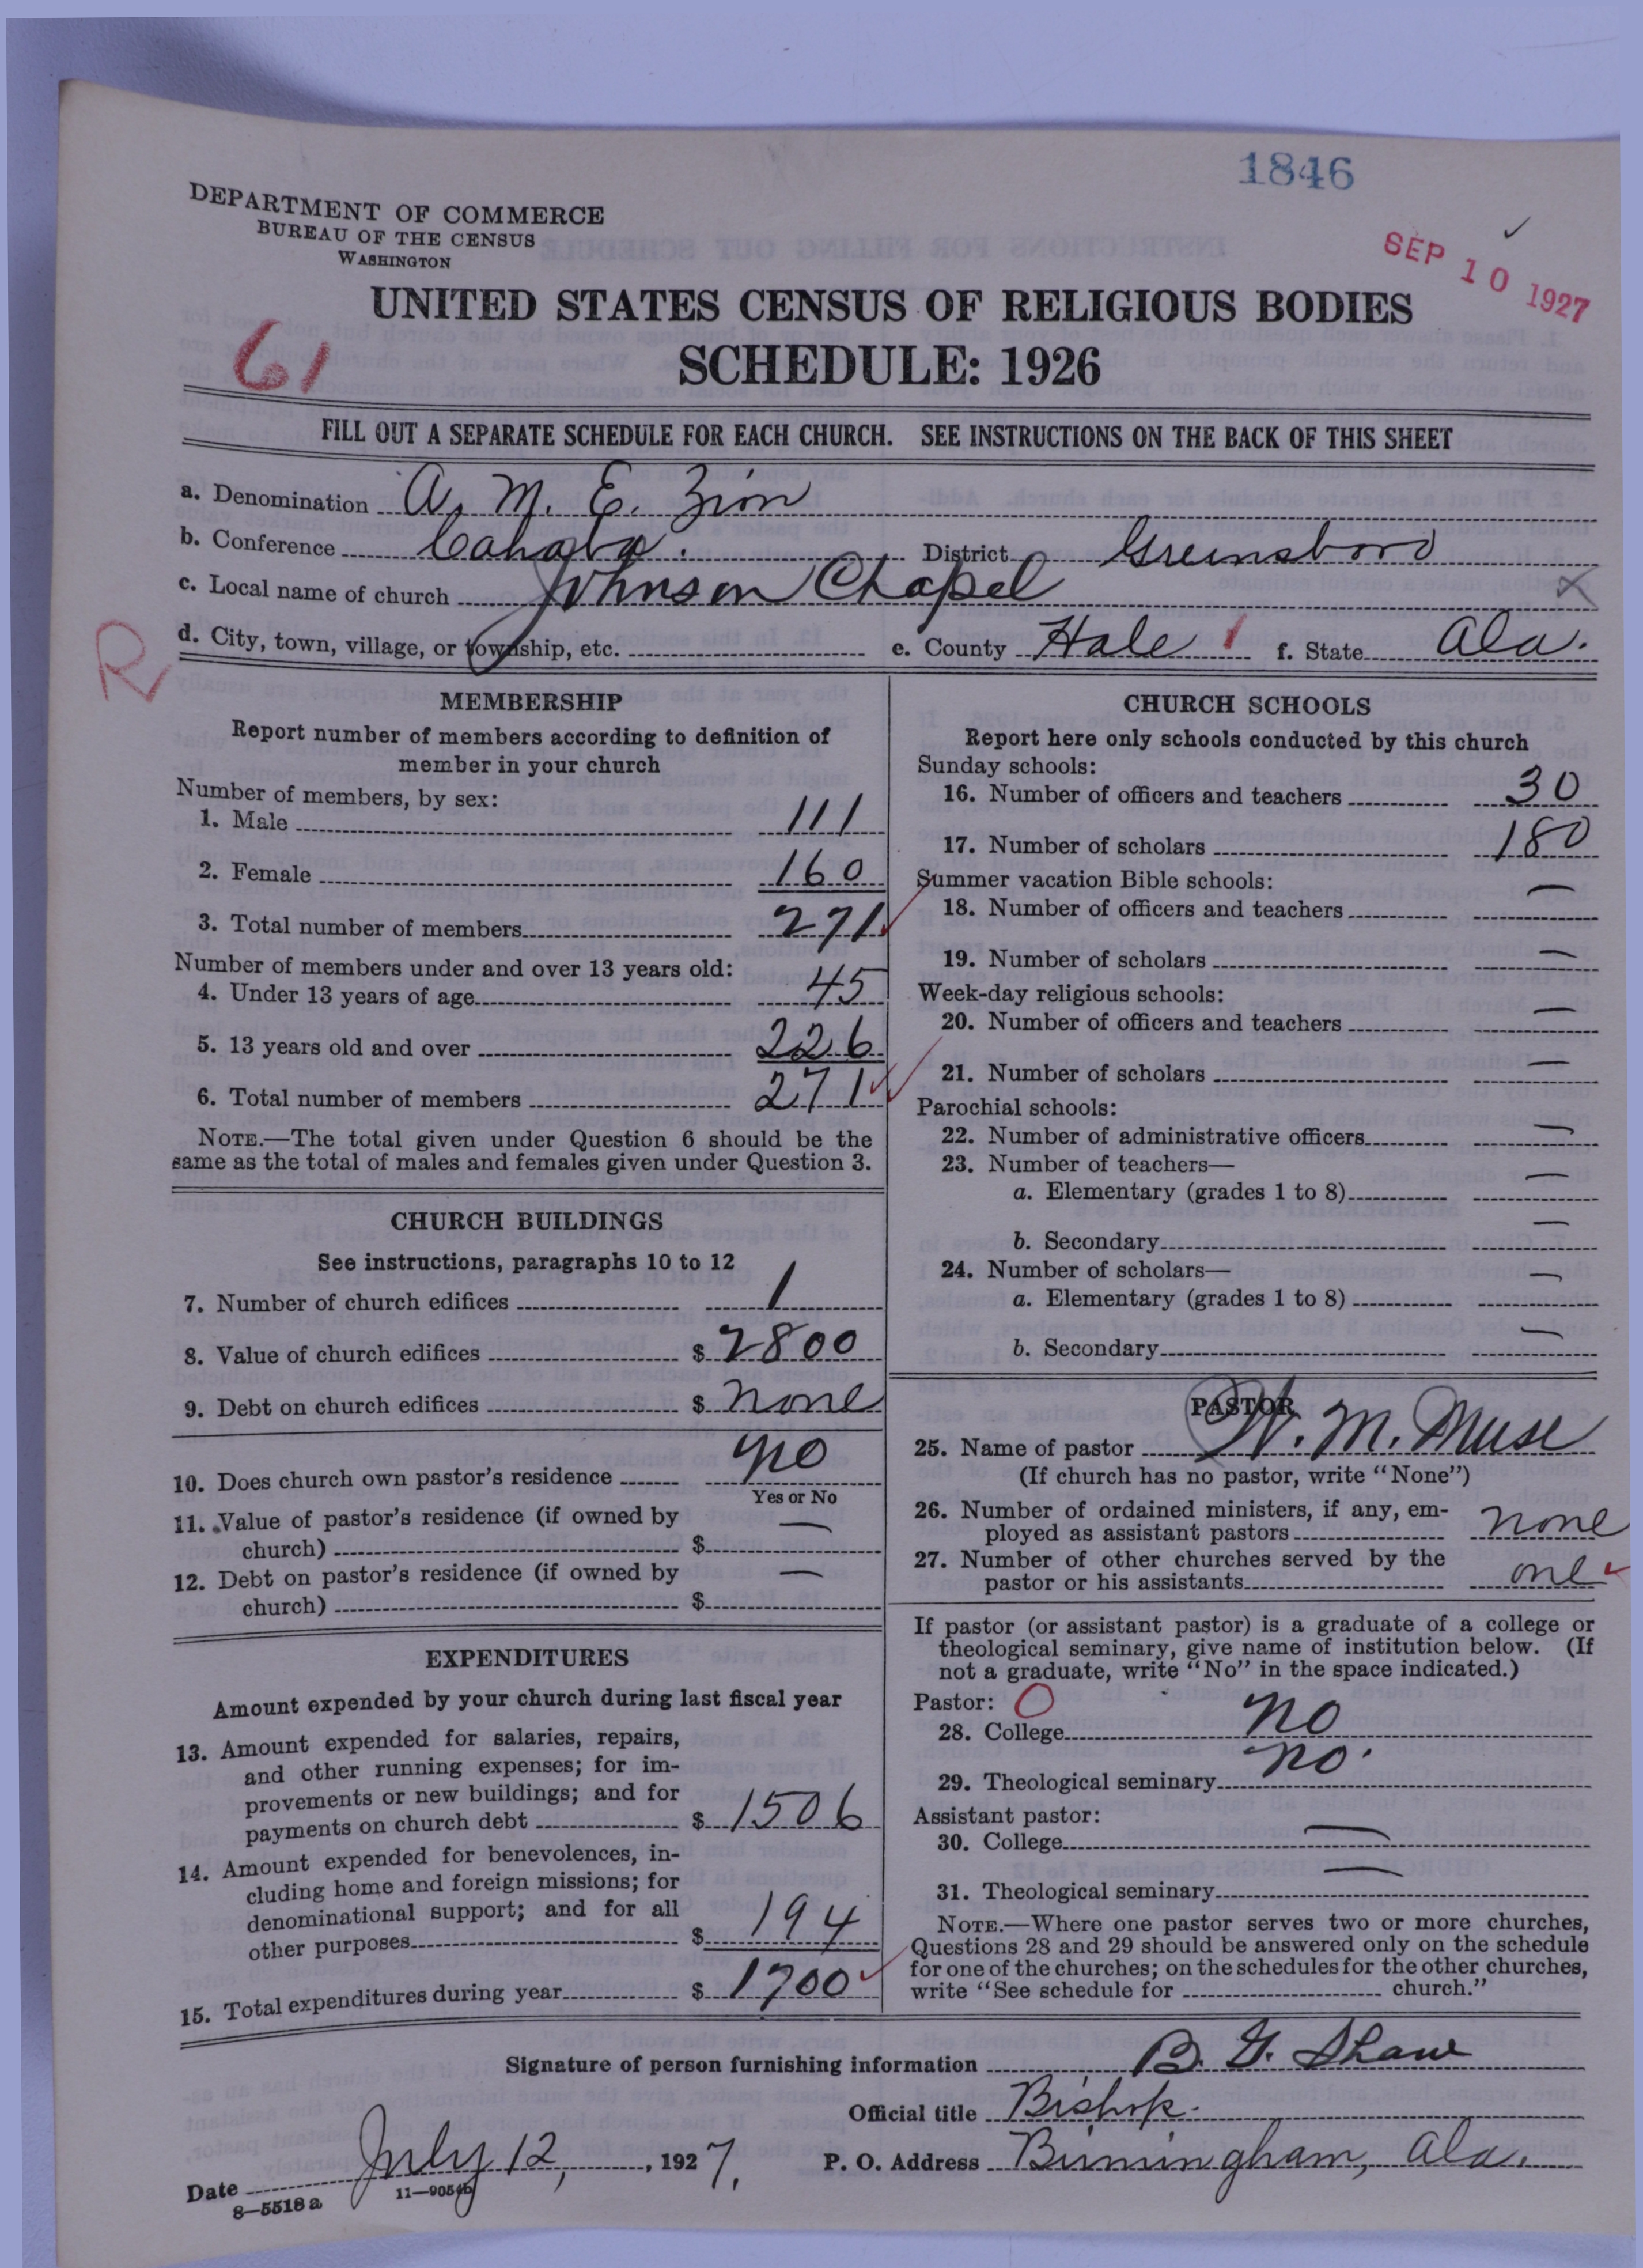 1846
DEPARTMENT OF COMMERCE
BUREAU OF THE CENSUS
WASHINGTON
SEP 10 1927
UNITED STATES CENSUS OF RELIGIOUS BODIES
61
SCHEDULE: 1926
FILL OUT A SEPARATE SCHEDULE FOR EACH CHURCH. SEE INSTRUCTIONS ON THE BACK OF THIS SHEET
a. Denomination A. M. E. Zion
b. Conference Cahaba. District Greensboro
c. Local name of church Johnson Chapel
d. City, town, village, or township, etc. e. County Hale f. State Ala.
R
MEMBERSHIP
Report number of members according to definition of
member in your church
Number of members, by sex:
1. Male 111
2. Female 160
3. Total number of members 271
Number of members under and over 13 years old:
4. Under 13 years of age 45
5. 13 years old and over 226
6. Total number of members 271
NOTE.—The total given under Question 6 should be the
same as the total of males and females given under Question 3.
CHURCH BUILDINGS
See instructions, paragraphs 10 to 12
7. Number of church edifices 1
8. Value of church edifices $ 2800
9. Debt on church edifices $ none
10. Does church own pastor's residence no
Yes or No
11. Value of pastor's residence (if owned by
church) $ —
12. Debt on pastor's residence (if owned by
church) $ —
EXPENDITURES
Amount expended by your church during last fiscal year
13. Amount expended for salaries, repairs,
and other running expenses; for im-
provements or new buildings; and for
payments on church debt $ 1506
14. Amount expended for benevolences, in-
cluding home and foreign missions; for
denominational support; and for all
other purposes $ 194
15. Total expenditures during year $ 1700
CHURCH SCHOOLS
Report here only schools conducted by this church
Sunday schools:
16. Number of officers and teachers 30
17. Number of scholars 180
Summer vacation Bible schools:
18. Number of officers and teachers —
19. Number of scholars —
Week-day religious schools:
20. Number of officers and teachers —
21. Number of scholars —
Parochial schools:
22. Number of administrative officers —
23. Number of teachers—
a. Elementary (grades 1 to 8) —
b. Secondary —
24. Number of scholars—
a. Elementary (grades 1 to 8) —
b. Secondary —
PASTOR
25. Name of pastor W. M. Muse
(If church has no pastor, write "None")
26. Number of ordained ministers, if any, em-
ployed as assistant pastors none
27. Number of other churches served by the
pastor or his assistants one
If pastor (or assistant pastor) is a graduate of a college or
theological seminary, give name of institution below. (If
not a graduate, write "No" in the space indicated.)
Pastor: O
28. College no
29. Theological seminary no.
Assistant pastor:
30. College —
31. Theological seminary —
NOTE.—Where one pastor serves two or more churches,
Questions 28 and 29 should be answered only on the schedule
for one of the churches; on the schedules for the other churches,
write "See schedule for church."
Signature of person furnishing information B. G. Shaw
Official title Bishop.
Date July 12, 1927. P. O. Address Birmingham, Ala.
8—5518 a 11—9054b